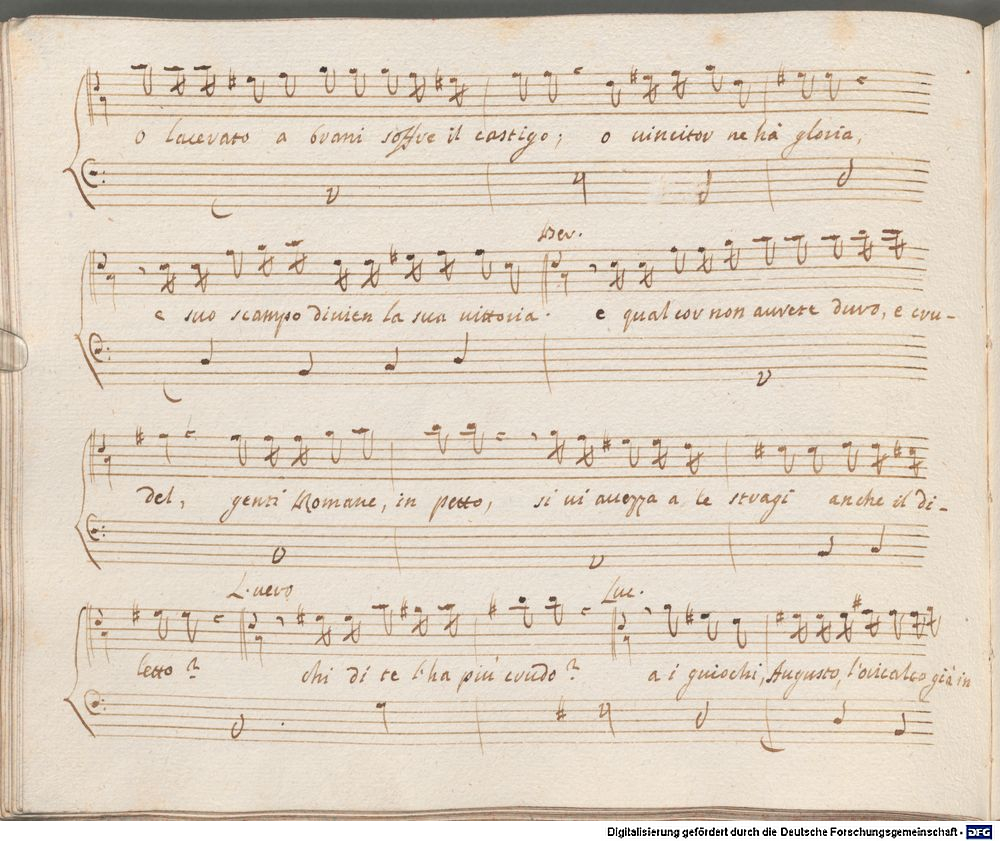 o lacerato a brani soffre il castigo; o vincitor ne hà gloria,
Ber.
e suo scampo divien la sua vittoria. e qual cor non avrete duro, e cru-
del, genti Romane, in petto, si vi avezza a le stragi anche il di-
L. vero Luc.
letto? chi di te l'ha più crudo? a i giuochi, Augusto, l'oricalco già in
Digitalisierung gefördert durch die Deutsche Forschungsgemeinschaft - DFG